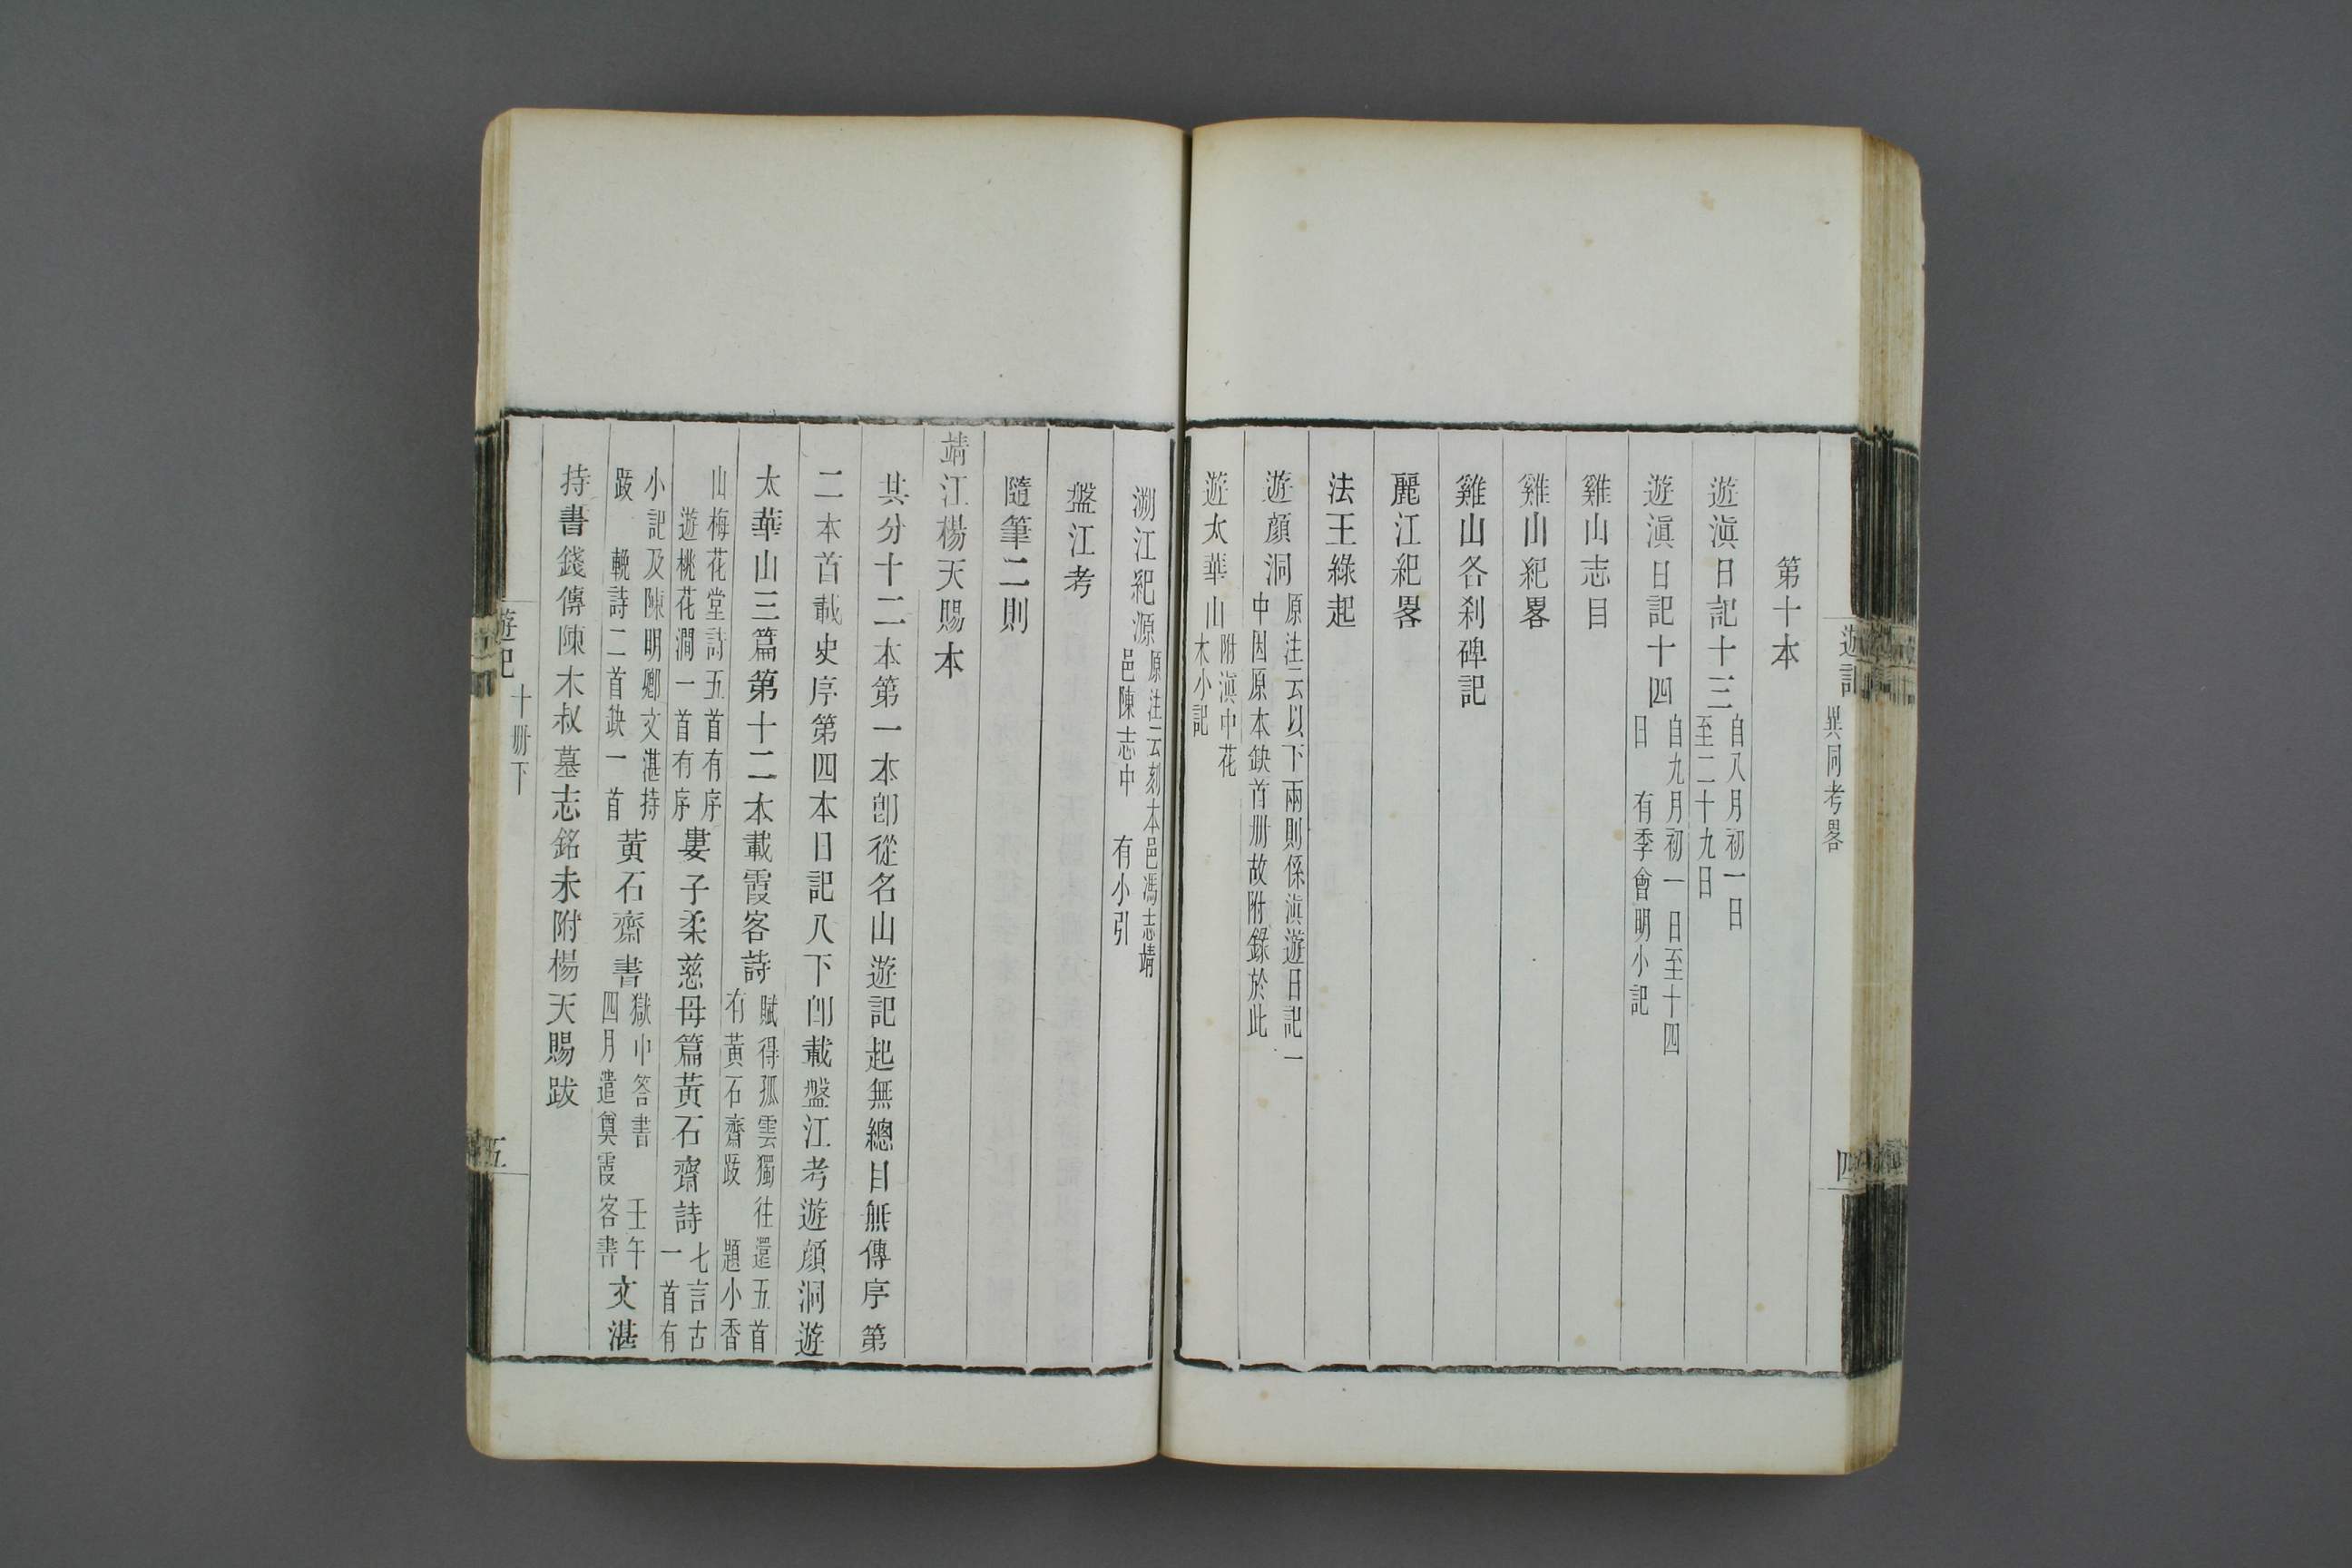 遊記
異同考畧
四
第十本
遊滇日記十三自八月初一日至二十九日
遊滇日記十四自九月初一日至十四日 有季會明小記
雞山志目
雞山紀畧
雞山各刹碑記
麗江紀畧
法王緣起
遊顔洞原注云以下兩則係滇遊日記一中因原本缺首册故附錄於此
遊太華山附滇中花木小記
溯江紀源原注云刻本邑馮志靖邑陳志中 有小引
盤江考
隨筆二則
靖江楊天賜本
共分十二本第一本卽從名山遊記起無總目無傳序第
二本首載史序第四本日記八下卽載盤江考遊顔洞遊
太華山三篇第十二本載霞客詩賦得孤雲獨往還五首有黃石齋跋 題小香
山梅花堂詩五首有序遊桃花澗一首有序婁子柔慈母篇黃石齋詩七言古一首有
小記及陳明卿文湛持跋 輓詩二首缺一首黃石齋書獄中答書 壬午四月遣奠霞客書文湛
持書錢傳陳木叔墓志銘末附楊天賜跋
遊記
十册下
五